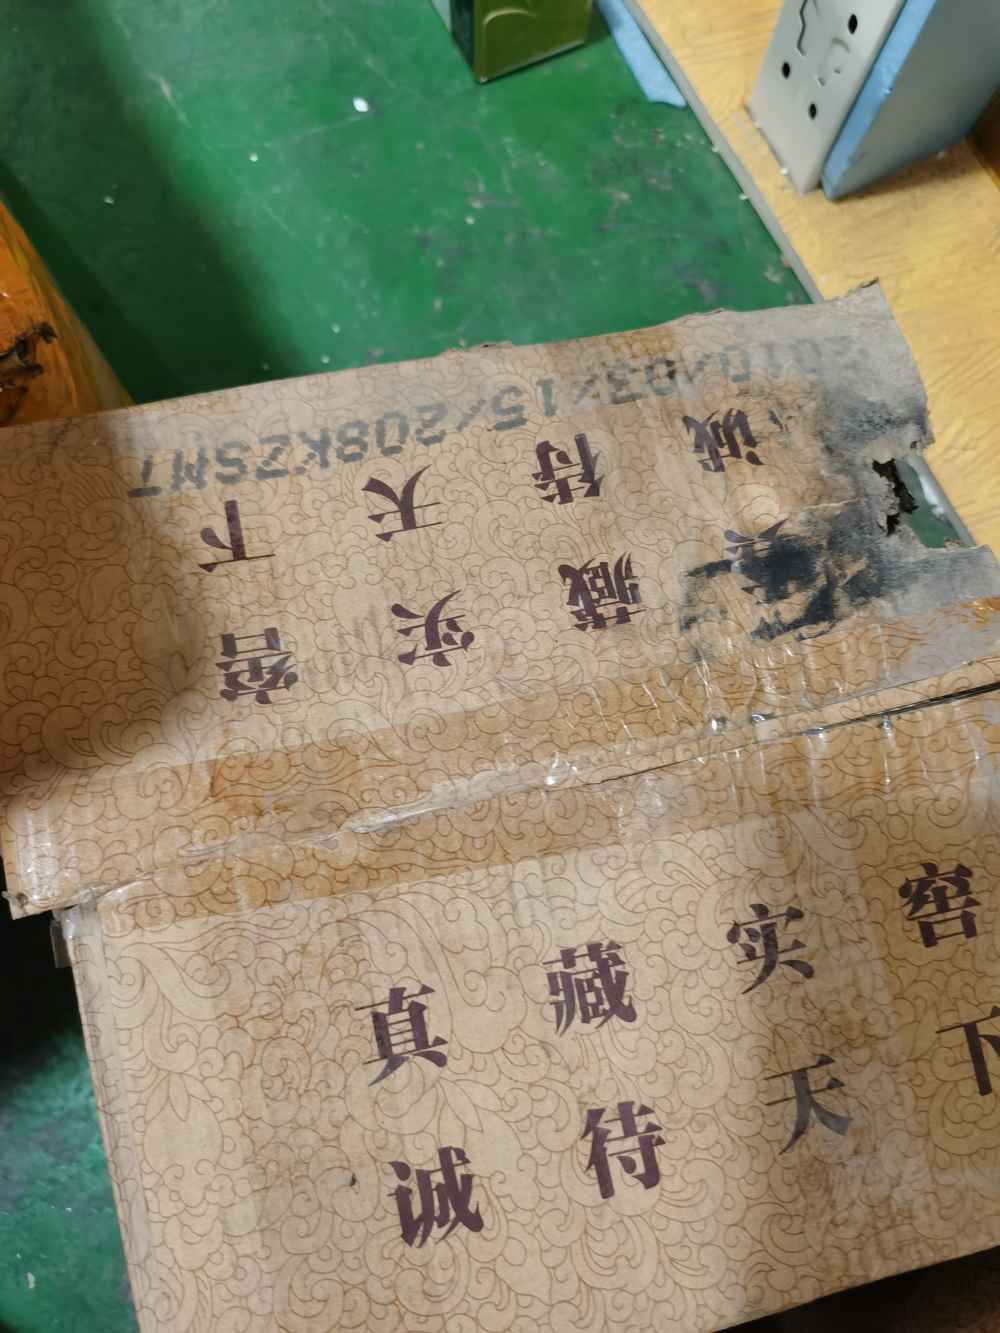 真藏实窖
诚待天下
2010/03/15/208KZSM1
真藏实窖
诚待天下